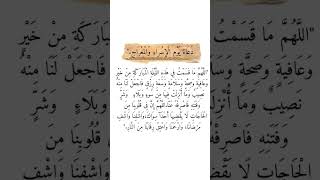 دعاء يوم الإسراء والمعراج
"اللَّهُمَّ مَا قَسَمْتَ فِي هَذِهِ اللَّيْلَةِ الْمُبَارَكَةِ مِنْ خَيْرٍ
وَعَافِيَةٍ وَصِحَّةٍ وَسَلَامَةٍ وَسَعَةِ رِزْقٍ فَاجْعَلْ لَنَا مِنْهُ
نَصِيبً وَمَا أَنْزَلْتَ فِيهَا مِنْ سُوءٍ وَبَلَاءٍ وَشَرٍّ
وَفِتْنَةٍ فَاصْرِفْهُ عَنَّا، اللَّهُمَّ إِنَّ فِي قُلُوبِنَا مِنَ
الْحَاجَاتِ لَا يَقْضِيهَا أَحَدٌ سِوَاكَ، فَاقْضِهَا وَاشْفِنَا وَاشْفِ
مَرْضَانَا، وَارْحَمْنَا وَاعْتِقْ رِقَابَنَا مِنَ النَّارِ."